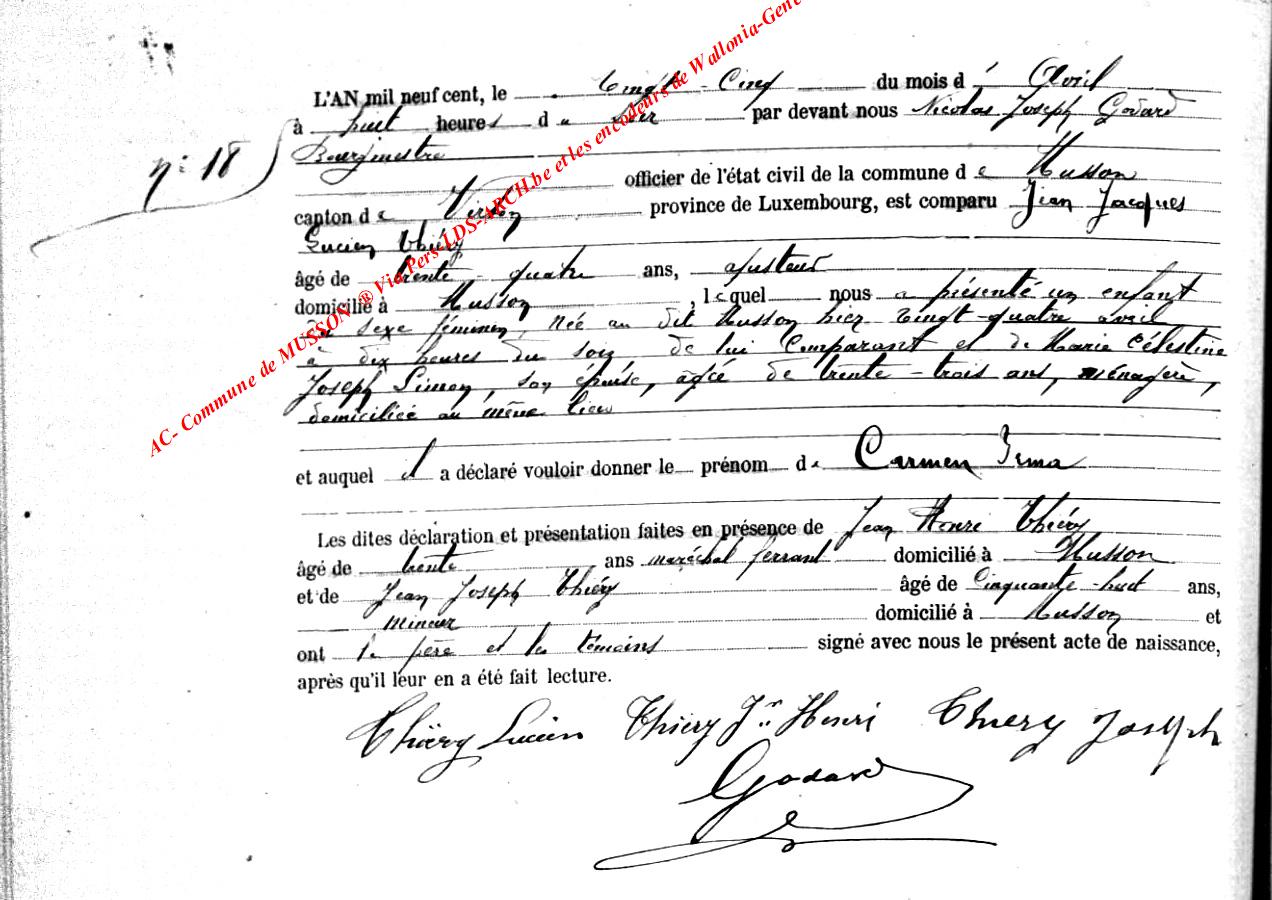 L'AN mil neuf cent, le vingt-Cinq du mois d' Avril
à huit heures du soir par devant nous Nicolas Joseph Godard
n: 18 Bourgmestre
officier de l'état civil de la commune de Musson
canton de Virton province de Luxembourg, est comparu Jean Jacques
Lucien Thiéry
âgé de trente-quatre ans, ajusteur
domicilié à Musson, lequel nous a présenté un enfant
du sexe féminen, née au dit Musson hier vingt-quatre avril
à dix heures du soir de lui Comparant et de Marie Célestine
Joseph Simon, son épouse, agée de trente-trois ans, ménagère,
domiciliée au même lieu
et auquel il a déclaré vouloir donner le prénom de Carmen Irma
Les dites déclaration et présentation faites en présence de Jean Henri Thiéry
âgé de trente ans maréchal ferrant domicilié à Musson
et de Jean Joseph Thiéry âgé de Cinquante-huit ans,
mineur domicilié à Musson et
ont le père et les témoins signé avec nous le présent acte de naissance,
après qu'il leur en a été fait lecture.
Thiéry Lucien Thiéry Jn Henri Thiery Joseph
Godard
AC- Commune de MUSSON ® Via Pers-LDS-ARCH.be et les encodeurs de Wallonia-Gene